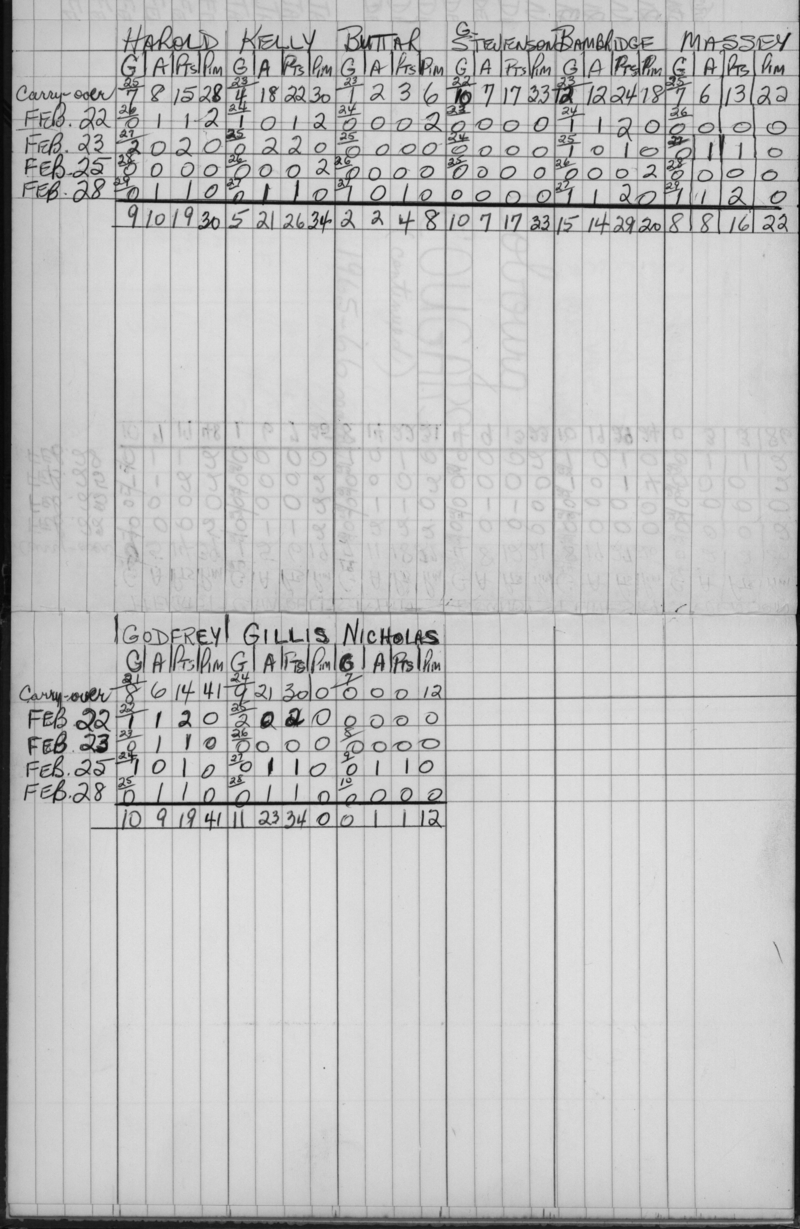 HAROLD KELLY BUTTAR G. STEVENSON BAMBRIDGE MASSEY
G A Pts Pim G A Pts Pim G A Pts Pim G A Pts Pim G A Pts Pim G A Pts Pim
Carry-over 25 7 8 15 28 23 4 18 22 30 23 1 2 3 6 22 10 7 17 33 23 12 12 24 18 25 7 6 13 22
FEB. 22 26 0 1 1 2 24 1 0 1 2 24 0 0 0 2 23 0 0 0 0 24 1 1 2 0 26 0 0 0 0
FEB. 23 27 2 0 2 0 25 0 2 2 0 25 0 0 0 0 24 0 0 0 0 25 1 0 1 0 27 0 1 1 0
FEB. 25 28 0 0 0 0 26 0 0 0 2 26 0 0 0 0 25 0 0 0 0 26 0 0 0 2 28 0 0 0 0
FEB. 28 29 0 1 1 0 27 0 1 1 0 27 1 0 1 0 0 0 0 0 27 1 1 2 0 29 1 1 2 0
9 10 19 30 5 21 26 34 2 2 4 8 10 7 17 33 15 14 29 20 8 8 16 22
GODFREY GILLIS NICHOLAS
G A Pts Pim G A Pts Pim G A Pts Pim
Carry-over 21 8 6 14 41 24 9 21 30 0 7 0 0 0 12
FEB 22 22 1 1 2 0 25 2 0 2 0 0 0 0 0
FEB. 23 23 0 1 1 0 26 0 0 0 0 8 0 0 0 0
FEB. 25 24 1 0 1 0 27 0 1 1 0 9 0 1 1 0
FEB. 28 25 0 1 1 0 28 0 1 1 0 10 0 0 0 0
10 9 19 41 11 23 34 0 0 1 1 12